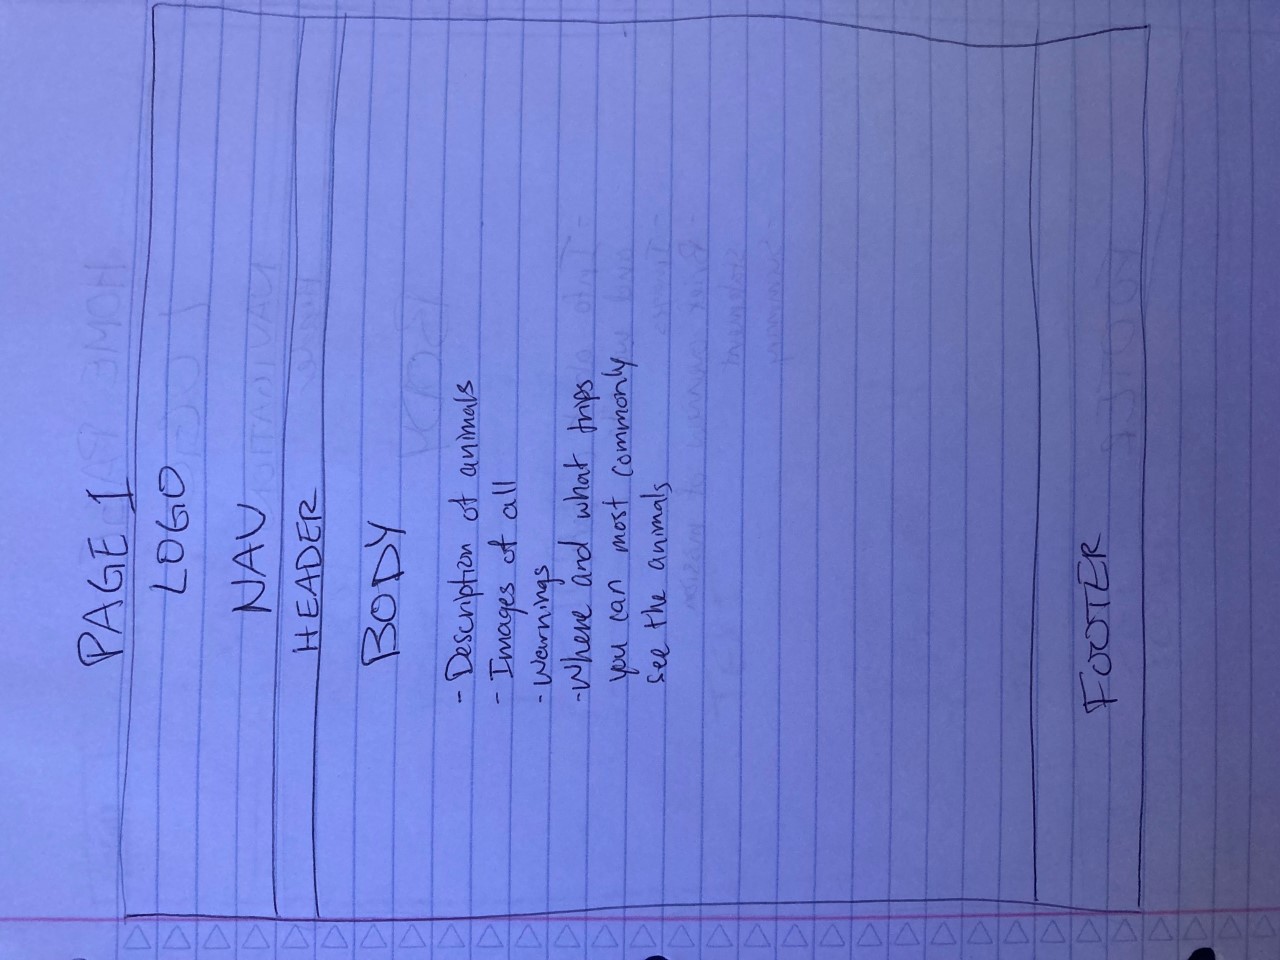 PAGE 1
LOGO
NAV
HEADER
BODY
- Description of animals
- Images of all
- Warnings
- Where and what trips
you can most commonly
see the animals
FOOTER